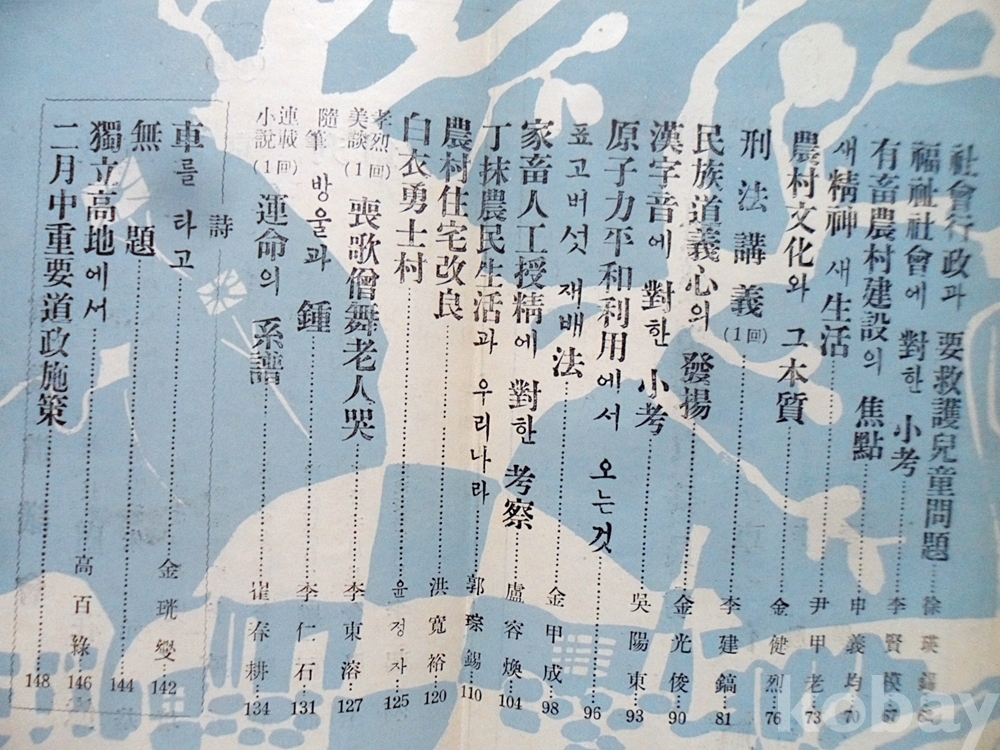 社會行政과 要救護兒童問題 徐瑛錫
福祉社會에 對한 小考 李賢模 67
有畜農村建設의 焦點 申義均 70
새精神 새生活 尹甲老 73
農村文化와 그本質 金健烈 76
刑法講義(1回) 李建鎬 81
民族道義心의 發揚 金光俊 90
漢字音에 對한 小考 吳陽東 93
原子力平和利用에서 오는것 96
표고버섯 재배法 金甲成 98
家畜人工授精에 對한 考察 盧容煥 104
丁抹農民生活과 우리나라 郭琮錫 110
農村住宅改良 洪寬裕 120
白衣勇士村 윤정자 125
孝烈美談(1回) 喪歌僧舞老人哭 李東溶 127
隨筆 방울과 鍾 李仁石 131
連載小說(1回) 運命의 系譜 崔春耕 134
詩
車를 타고 金珖燮 142
無題 144
獨立高地에서 高百祿 146
二月中重要道政施策 148
kobay